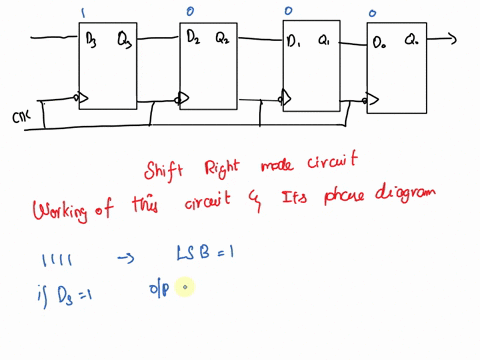 1 0 0 0
D₃ Q₃ D₂ Q₂ D₁ Q₁ D₀ Q₀
CLK
Shift Right mode circuit
Working of this circuit & Its phase diagram
1111 → LSB = 1
if D₃ = 1 O/P